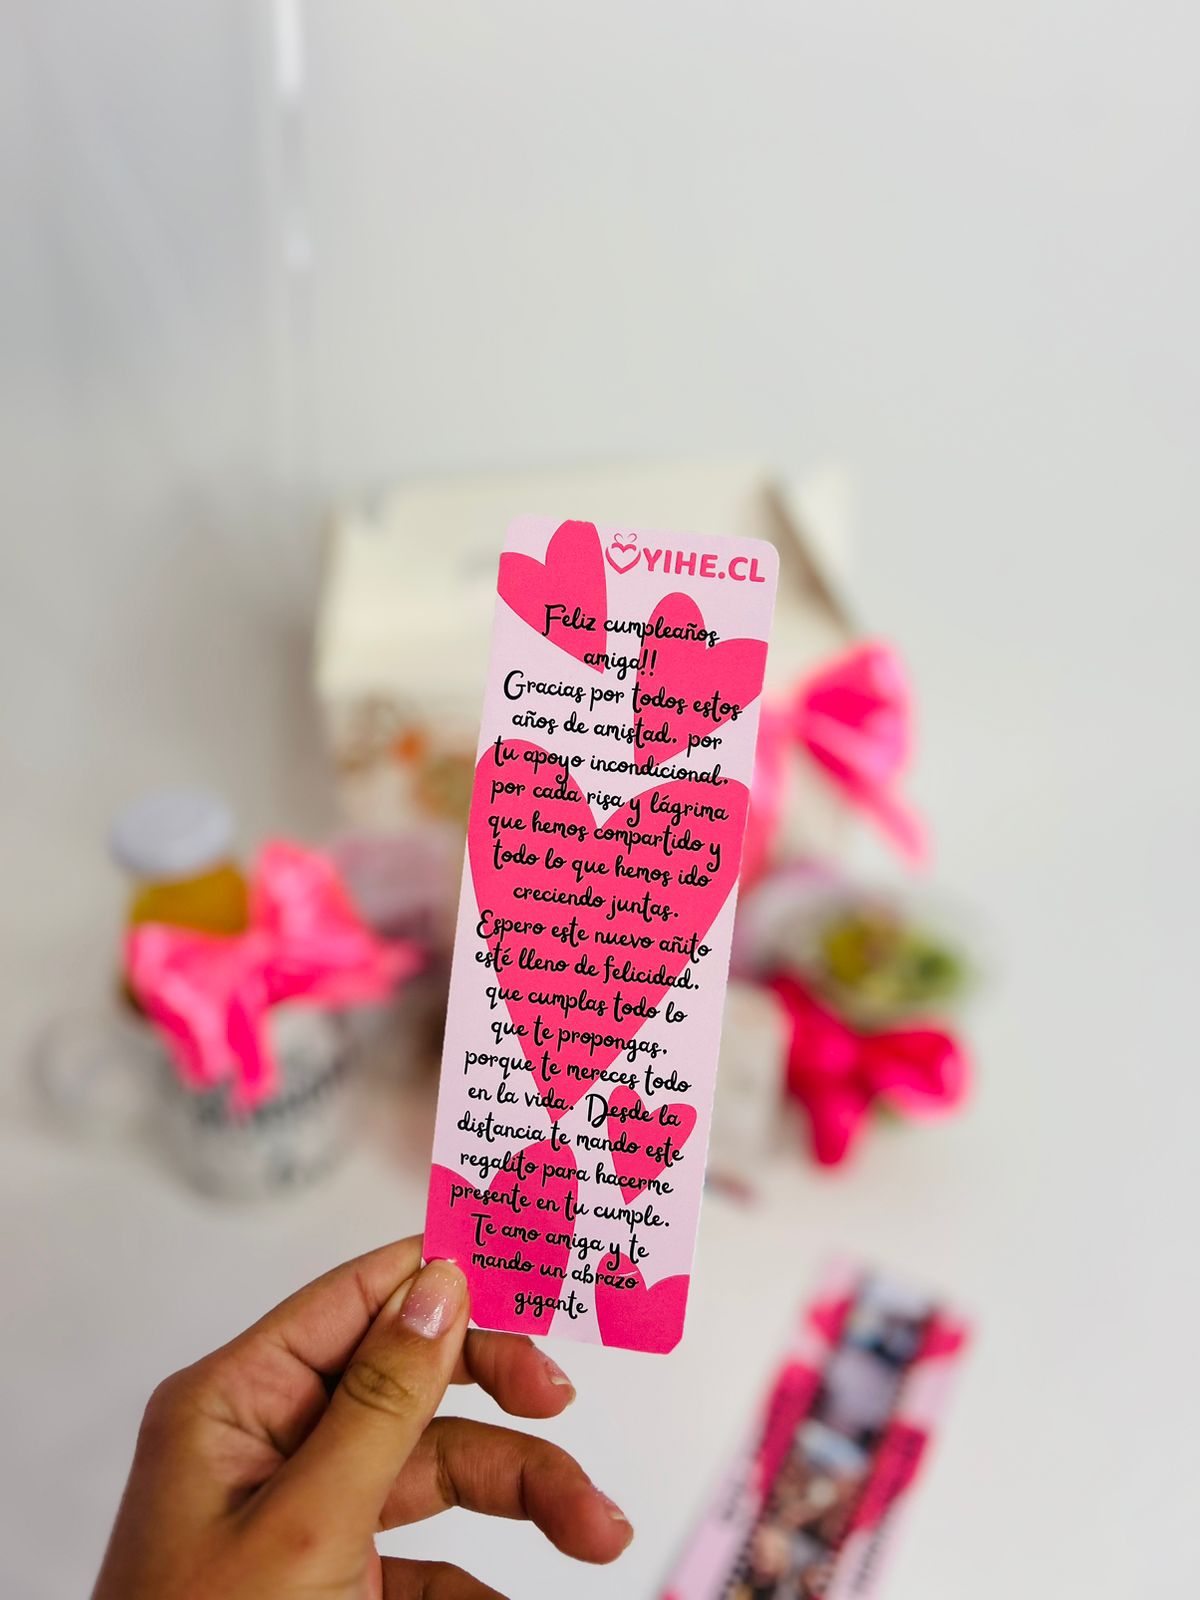 YIHE.CL
Feliz cumpleaños
amiga!!
Gracias por todos estos
años de amistad. por
tu apoyo incondicional.
por cada risa y lágrima
que hemos compartido y
todo lo que hemos ido
creciendo juntas.
Espero este nuevo añito
esté lleno de felicidad.
que cumplas todo lo
que te propongas.
porque te mereces todo
en la vida. Desde la
distancia te mando este
regalito para hacerme
presente en tu cumple.
Te amo amiga y te
mando un abrazo
gigante